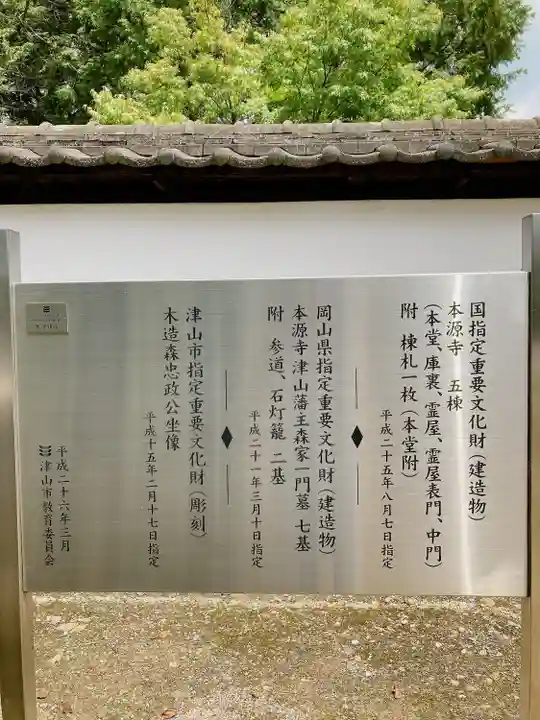 国指定重要文化財（建造物）
本源寺 五棟
（本堂、庫裏、霊屋、霊屋表門、中門）
附 棟札一枚（本堂附）
平成二十五年八月七日指定
岡山県指定重要文化財（建造物）
本源寺津山藩主森家一門墓 七基
附 参道、石灯籠 二基
平成二十一年三月十日指定
津山市指定重要文化財（彫刻）
木造森忠政公坐像
平成十五年二月十七日指定
平成二十六年三月
津山市教育委員会